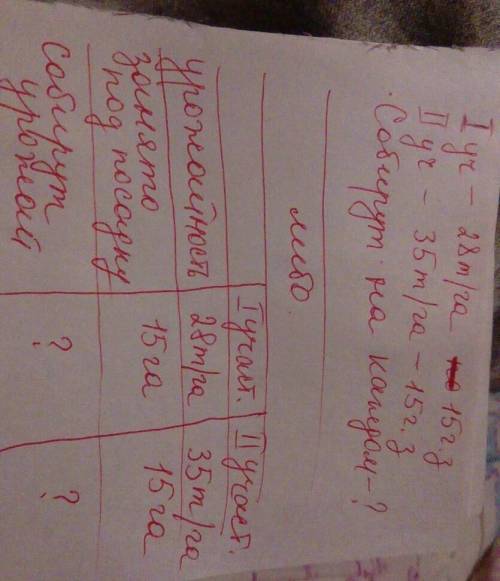 I уч - 28т/га 15г.з
II уч - 35т/га - 15г.з
Собирут на каждом - ?
либо
I участ. II участ.
урожайность 28т/га 35т/га
занято под посадку 15га 15га
собирут урожай ? ?